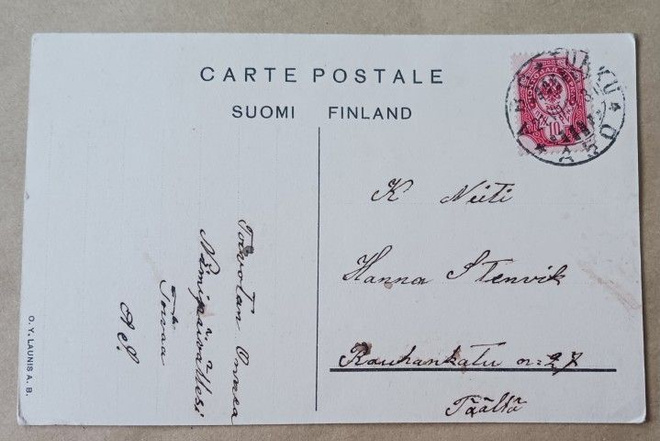 CARTE POSTALE
SUOMI FINLAND
TURKU
ÅBO
10
K Neiti
Hanna Stenvik
Rauhankatu n:o 27
Täältä
Toivotan Onnea
Nimipäivällesi
Toivoo
A S.
O. Y. LAUNIS A. B.